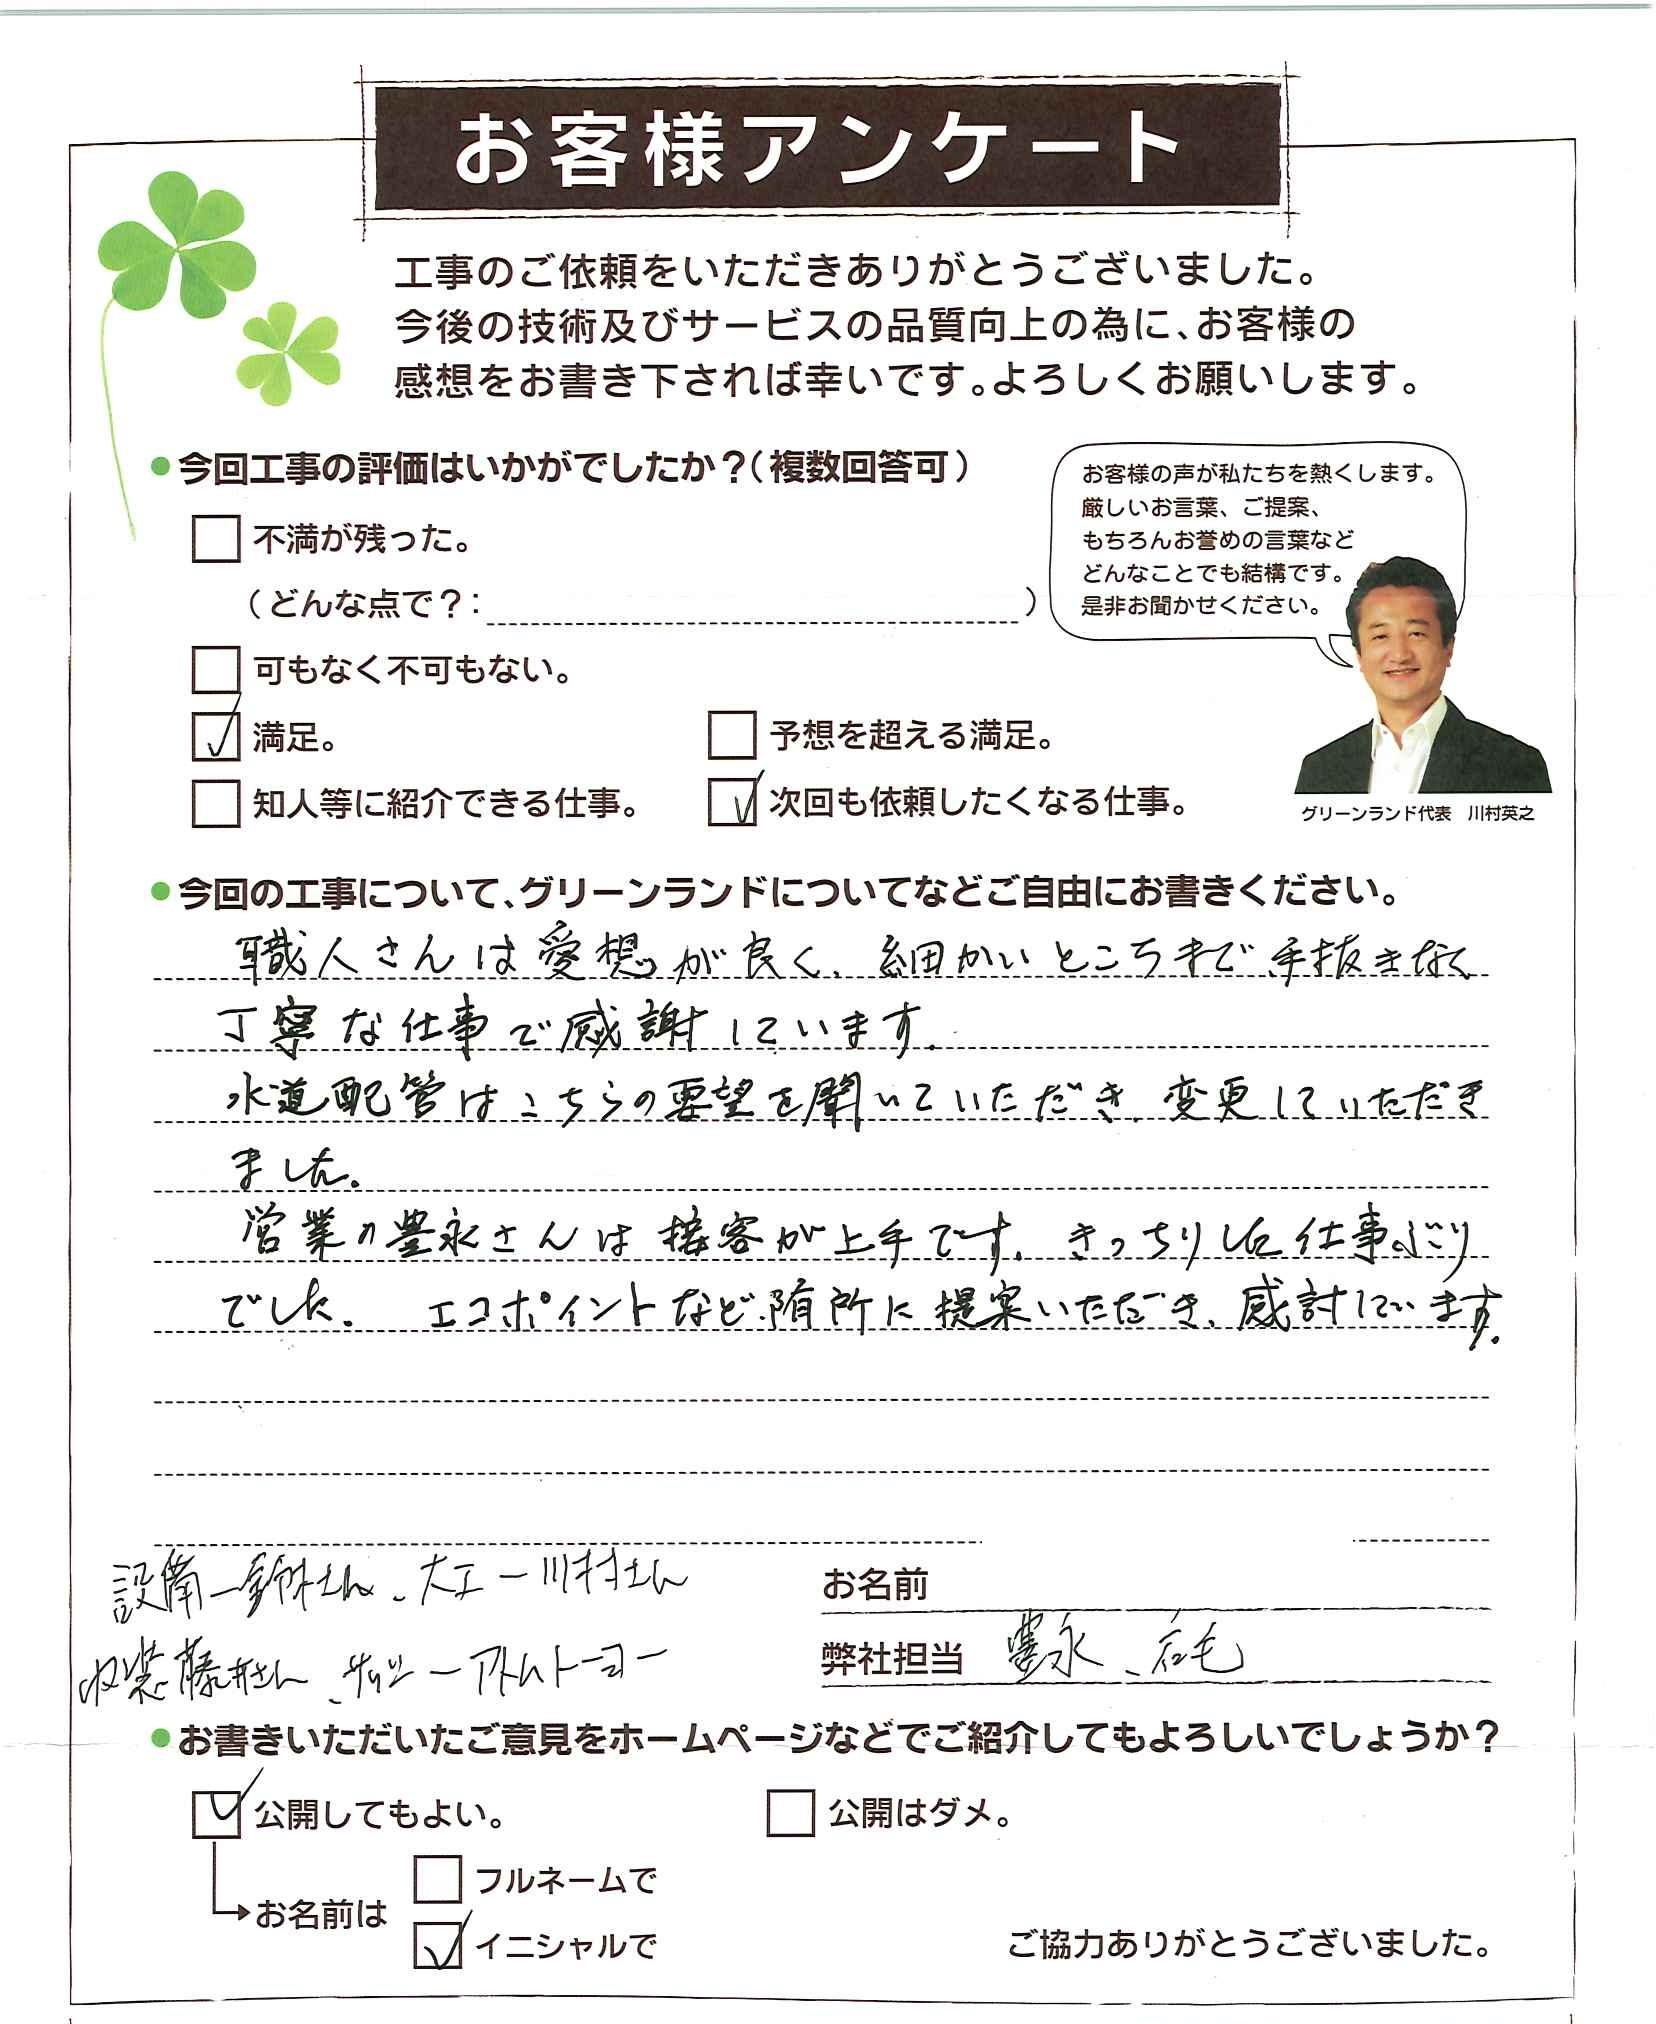 お客様アンケート
工事のご依頼をいただきありがとうございました。
今後の技術及びサービスの品質向上の為に、お客様の
感想をお書き下されば幸いです。よろしくお願いします。
●今回工事の評価はいかがでしたか？(複数回答可)
不満が残った。
(どんな点で？: )
可もなく不可もない。
満足。
予想を超える満足。
知人等に紹介できる仕事。
次回も依頼したくなる仕事。
お客様の声が私たちを熱くします。
厳しいお言葉、ご提案、
もちろんお誉めの言葉など
どんなことでも結構です。
是非お聞かせください。
グリーンランド代表 川村英之
●今回の工事について、グリーンランドについてなどご自由にお書きください。
職人さんは愛想が良く、細かいところまで手抜きなく
丁寧な仕事で感謝しています。
水道配管はこちらの要望を聞いていただき、変更していただき
ました。
営業の豊永さんは接客が上手です。きっちりした仕事ぶり
でした。エコポイントなど随所に提案いただき、感謝しています。
設備ー鈴木さん、大工ー川村さん
内装 藤井さん、サッシーアトムトーヨー
お名前
弊社担当 豊永、石毛
●お書きいただいたご意見をホームページなどでご紹介してもよろしいでしょうか？
公開してもよい。
公開はダメ。
お名前は
フルネームで
イニシャルで
ご協力ありがとうございました。